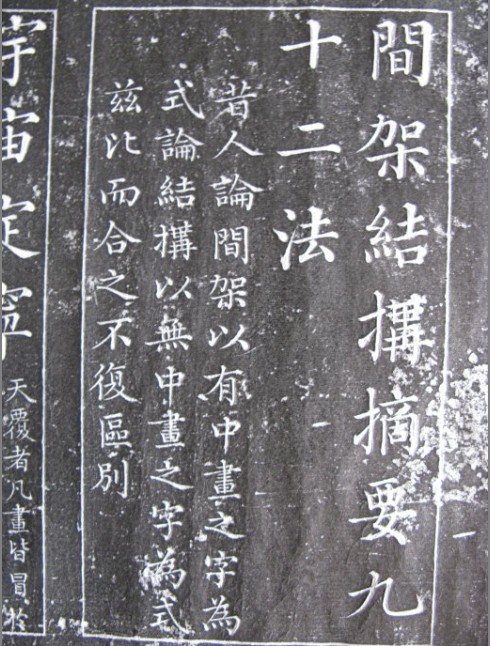 間架結搆摘要九
十二法
昔人論間架以有中畫之字為
式論結搆以無中畫之字為式
茲比而合之不復區別
宇宙定寧
天覆者凡畫皆冒於